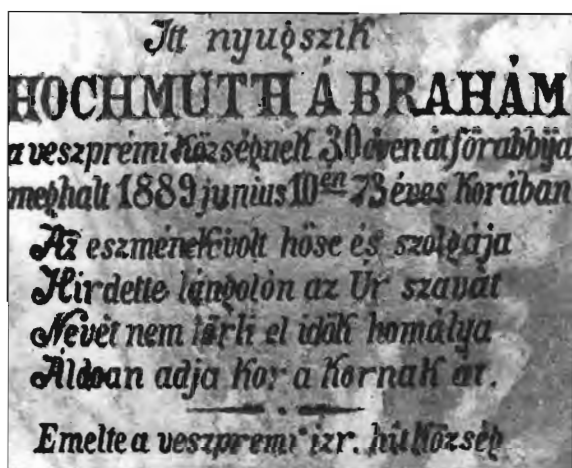 Itt nyugszik
HOCHMUTH ÁBRAHÁM
a veszprémi községnek 30 éven át főrabbija
meghalt 1889 junius 10en 73 éves korában
Az eszmének volt hőse és szolgája
Hirdette lángolón az Ur szavát
Nevét nem törli el idők homálya
Áldoan adja kor a kornak át.
Emelte a veszpremi izr. hitközség